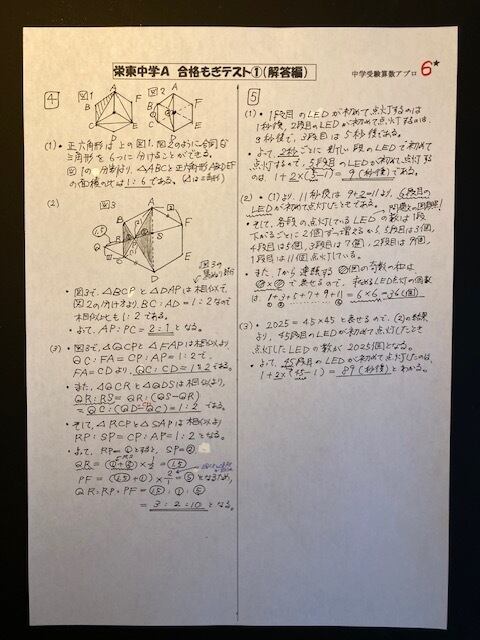 栄東中学A 合格もぎテスト①(解答編)
中学受験算数アプロ 6*
4
図1 A F B E C D
図2 A F B E C D
(1)・正六角形は上の図1,図2のように合同な
三角形を6つに分けることができる。
図1の分割より、△ABCと正六角形ABCDEF
の面積の比は1:6である。
(2)
図3
・図3で、△BCPと△DAPは相似で、
図2の分け方より、BC:AD=1:2なので
相似比も1:2である。
・よって、AP:PC=2:1となる。
(3)・図3で、△QCPと△FAPは相似で
QC:FA=CP:AP=1:2で、
FA=CDより、QC:CD=1:2である。
・また、△QCRと△QDSは相似より、
QR:RS=QR:(QS-QR)
=QC:(QD-QC)=1:2である。
・そして、△RCPと△SAPは相似より
RP:SP=CP:AP=1:2となる。
・よって、RP=①とすると、SP=②
QR=(①+②)×1/2=①.5
PF=(①.5+①)×2/1=⑤となるため、
QR:RP:PF=①.5:①:⑤
=3:2:10となる。
5
(1)・1段目のLEDが初めて点灯するのは
1秒後、2段目のLEDが初めて点灯するのは、
3秒後で、3段目は5秒後である。
・よって、2秒ごとに新しい段のLEDで初めて
点灯するので、5段目のLEDが初めて点灯する
のは、1+2×(5-1)=9(秒後)である。
(2)・(1)より、11秒後は9+2=11より、6段目の
LEDが初めて点灯したときである。
・そして、各段の点灯しているLEDの数は1段
下がるごとに2個ずつ変えるから、5段目は3個、
4段目は5個、3段目は7個、2段目は9個、
1段目は11個点灯している。
・また、1から連続する 個の奇数の和は
で表せるので、求めるLED点灯の個数
は、1+3+5+7+9+11=6×6=36(個)
(3)・2025=45×45と表せるので、(2)の結果
より、45段目のLEDが初めて点灯したとき
点灯したLEDの数が2025個となる。
・よって、45段目のLEDが初めて点灯したのは、
1+2×(45-1)=89(秒後)とわかる。